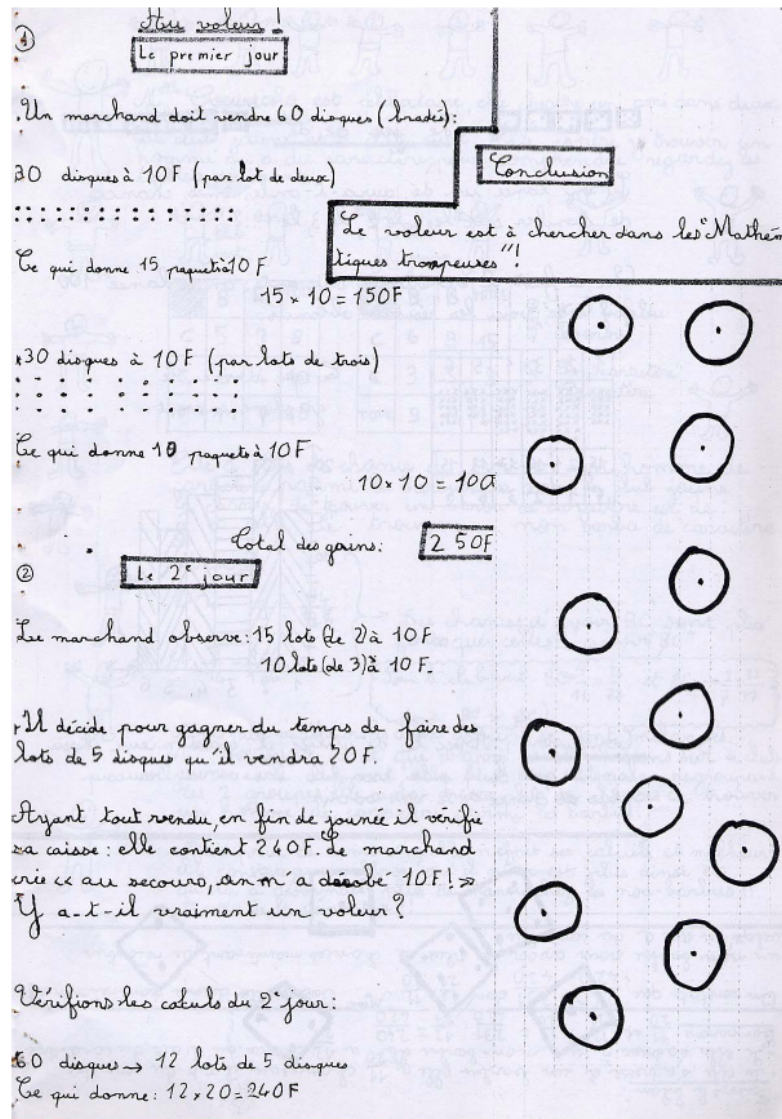 Au voleur !
①
Le premier jour
Un marchand doit vendre 60 disques (bradés):
30 disques à 10F (par lot de deux)
Ce qui donne 15 paquets à 10 F
15 × 10 = 150F
30 disques à 10F (par lots de trois)
Ce qui donne 10 paquets à 10F
10 × 10 = 100
Total des gains: 250F
②
Le 2e jour
Le marchand observe: 15 lots (de 2) à 10 F
10 lots (de 3) à 10 F.
Il décide pour gagner du temps de faire des
lots de 5 disques qu'il vendra 20F.
Ayant tout vendu, en fin de journée il vérifie
sa caisse: elle contient 240F. Le marchand
crie << au secours, on m'a dérobé 10F! >>
Y a-t-il vraiment un voleur?
Vérifions les calculs du 2e jour:
60 disques → 12 lots de 5 disques
Ce qui donne: 12 × 20 = 240F
Conclusion
Le voleur est à chercher dans les "Mathéma
tiques trompeuses"!